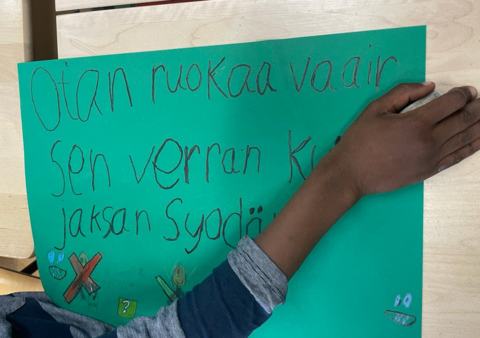 Otan ruokaa vaair
sen verran
jaksan Syodä
?